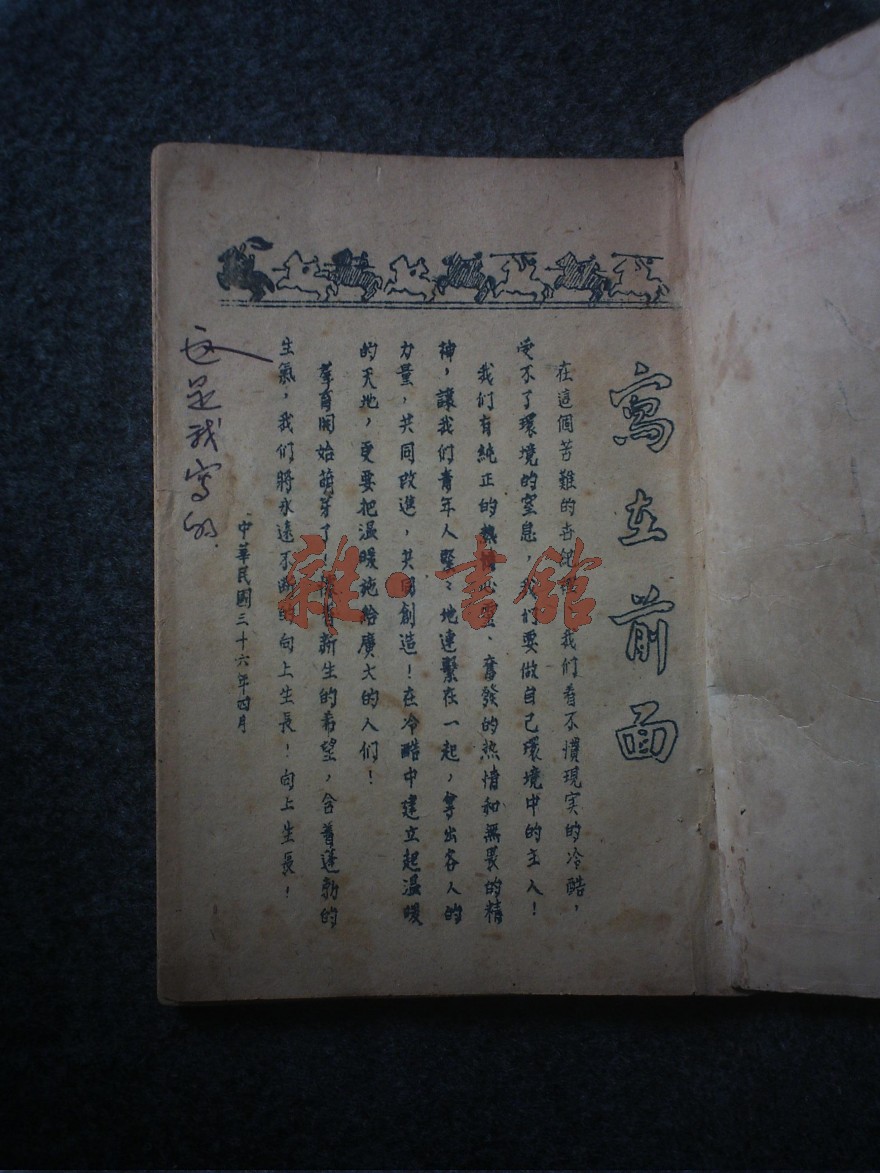 寫在前面
在這個苦難的世紀裡，我们看不慣現实的冷酷，
受不了環境的窒息，我们要做自己環境中的主人！
我们有純正的熱情心靈、奮發的热情和無畏的精
神，讓我们青年人堅々地連繫在一起，奪出各人的
力量，共同改進，共同創造！在冷酷中建立起温暖
的天地，更要把温暖施給廣大的人们！
羣育開始萌芽了！懷着新生的希望，含着蓬勃的
生氣，我们將永遠不断的向上生長！向上生長！
中華民國三十六年四月
这是我写的.
雜·書館